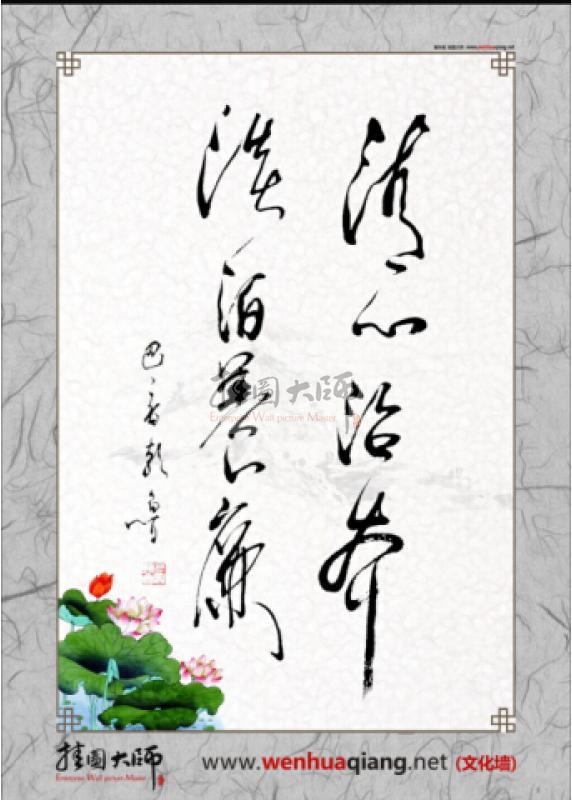 www.wenhuaqiang.net
清心治本
淡泊养廉
挂图大师
Enterprise Wall picture Master
挂图大师
Enterprise Wall picture Master
www.wenhuaqiang.net (文化墙)